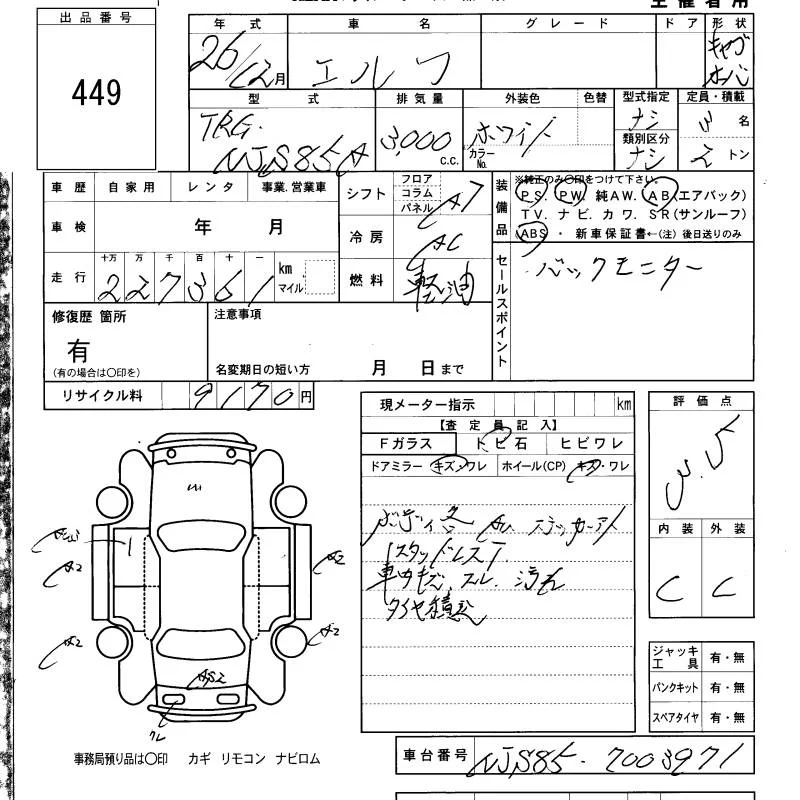 出品番号
449
年式 車名 グレード ドア 形状
26/12月 エルフ キャブ
型式 排気量 外装色 色替 型式指定 定員・積載
TRG. 3,000 c.c. ホワイト カラーNo. ナシ 3名
NJS85A 類別区分 ナシ 2トン
車歴 自家用 レンタ 事業.営業車
車検 年 月
走行 十万 万 千 百 十 一
227361 km マイル
シフト フロア コラム パネル AT
冷房 AC
燃料 軽油
装備品 ※純正のみ〇印をつけて下さい。
PS. PW. 純AW. AB(エアバック)
TV. ナビ. カワ. SR(サンルーフ)
ABS ・ 新車保証書←(注)後日送りのみ
セールスポイント
バックモニター
修復歴 箇所
有
(有の場合は〇印を)
注意事項
名変期日の短い方 月 日まで
リサイクル料 9170円
現メーター指示 km
【査定員記入】
Fガラス トビ石 ヒビワレ
ドアミラー キズ・ワレ ホイール(CP) キズ・ワレ
スタッドレスT
車内キズ、スレ、汚れ
評価点
3.5
内装 外装
C C
ジャッキ工具 有・無
パンクキット 有・無
スペアタイヤ 有・無
A2
A2
A2
A2
事務局預り品は〇印 カギ リモコン ナビロム
車台番号 NJS85-7003971